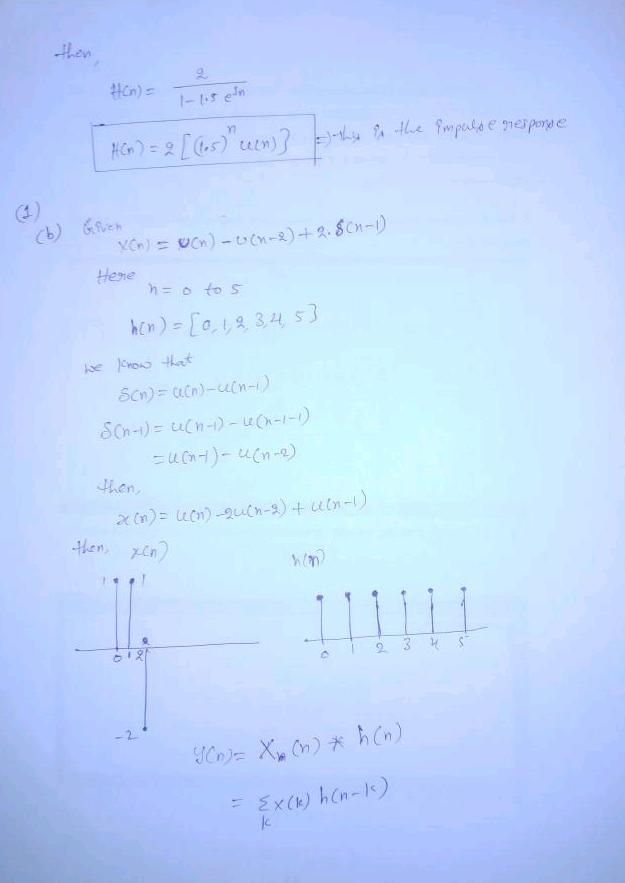 then,
H(n) = 2 / 1-1.5 e^jn
H(n) = 2 [(1.5)^n u(n)} => this is the impulse response
(1)
(b) Given
x(n) = u(n) - u(n-2) + 2.δ(n-1)
Here
n = 0 to 5
h(n) = [0,1,2,3,4,5}
we know that
δ(n) = u(n)-u(n-1)
δ(n-1) = u(n-1) - u(n-1-1)
= u(n-1) - u(n-2)
then,
x(n) = u(n) -2u(n-2) + u(n-1)
then, x(n) h(n)
1 1
0 1 2 0 1 2 3 4 5
-2
y(n) = X(n) * h(n)
= Σ x(k) h(n-k)
k